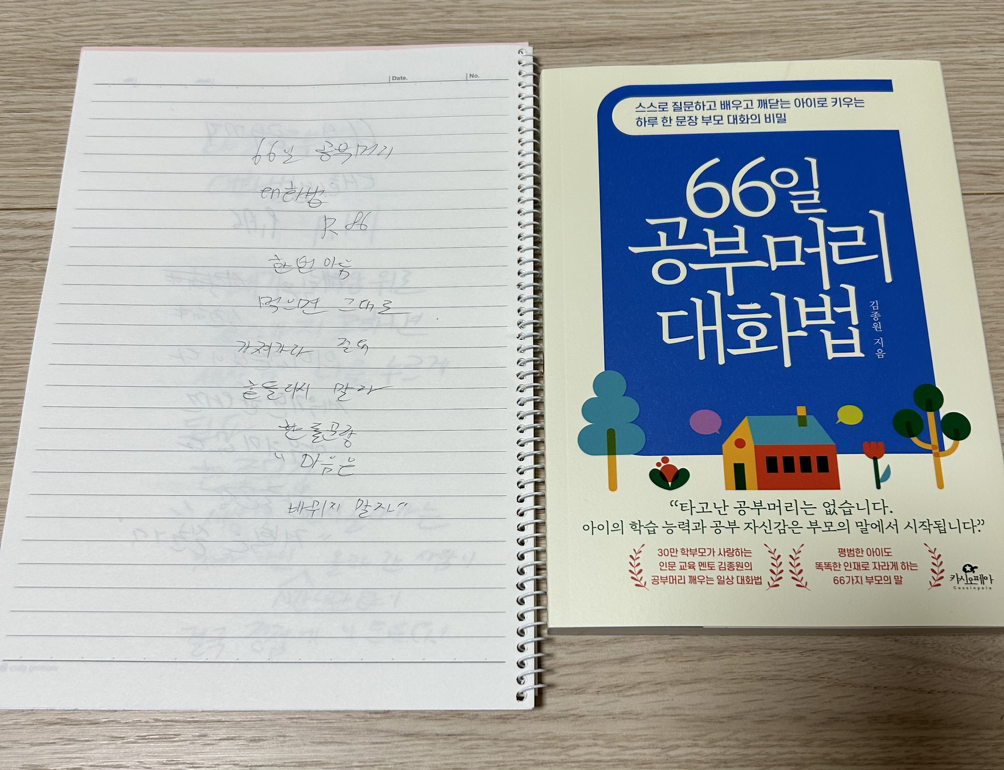 Date.
No.
66일 공부머리
대화법
P. 86
한번 마음
먹으면 그대로
가져가라
흔들리지 말자
한 줄 문장
" 마음은
바뀌지 말자"
스스로 질문하고 배우고 깨닫는 아이로 키우는
하루 한 문장 부모 대화의 비밀
66일
공부머리
대화법
김종원 지음
“타고난 공부머리는 없습니다.
아이의 학습 능력과 공부 자신감은 부모의 말에서 시작됩니다.”
30만 학부모가 사랑하는
인문 교육 멘토 김종원의
공부머리 깨우는 일상 대화법
평범한 아이도
똑똑한 인재로 자라게 하는
66가지 부모의 말
카시오페아
Cassiopeia